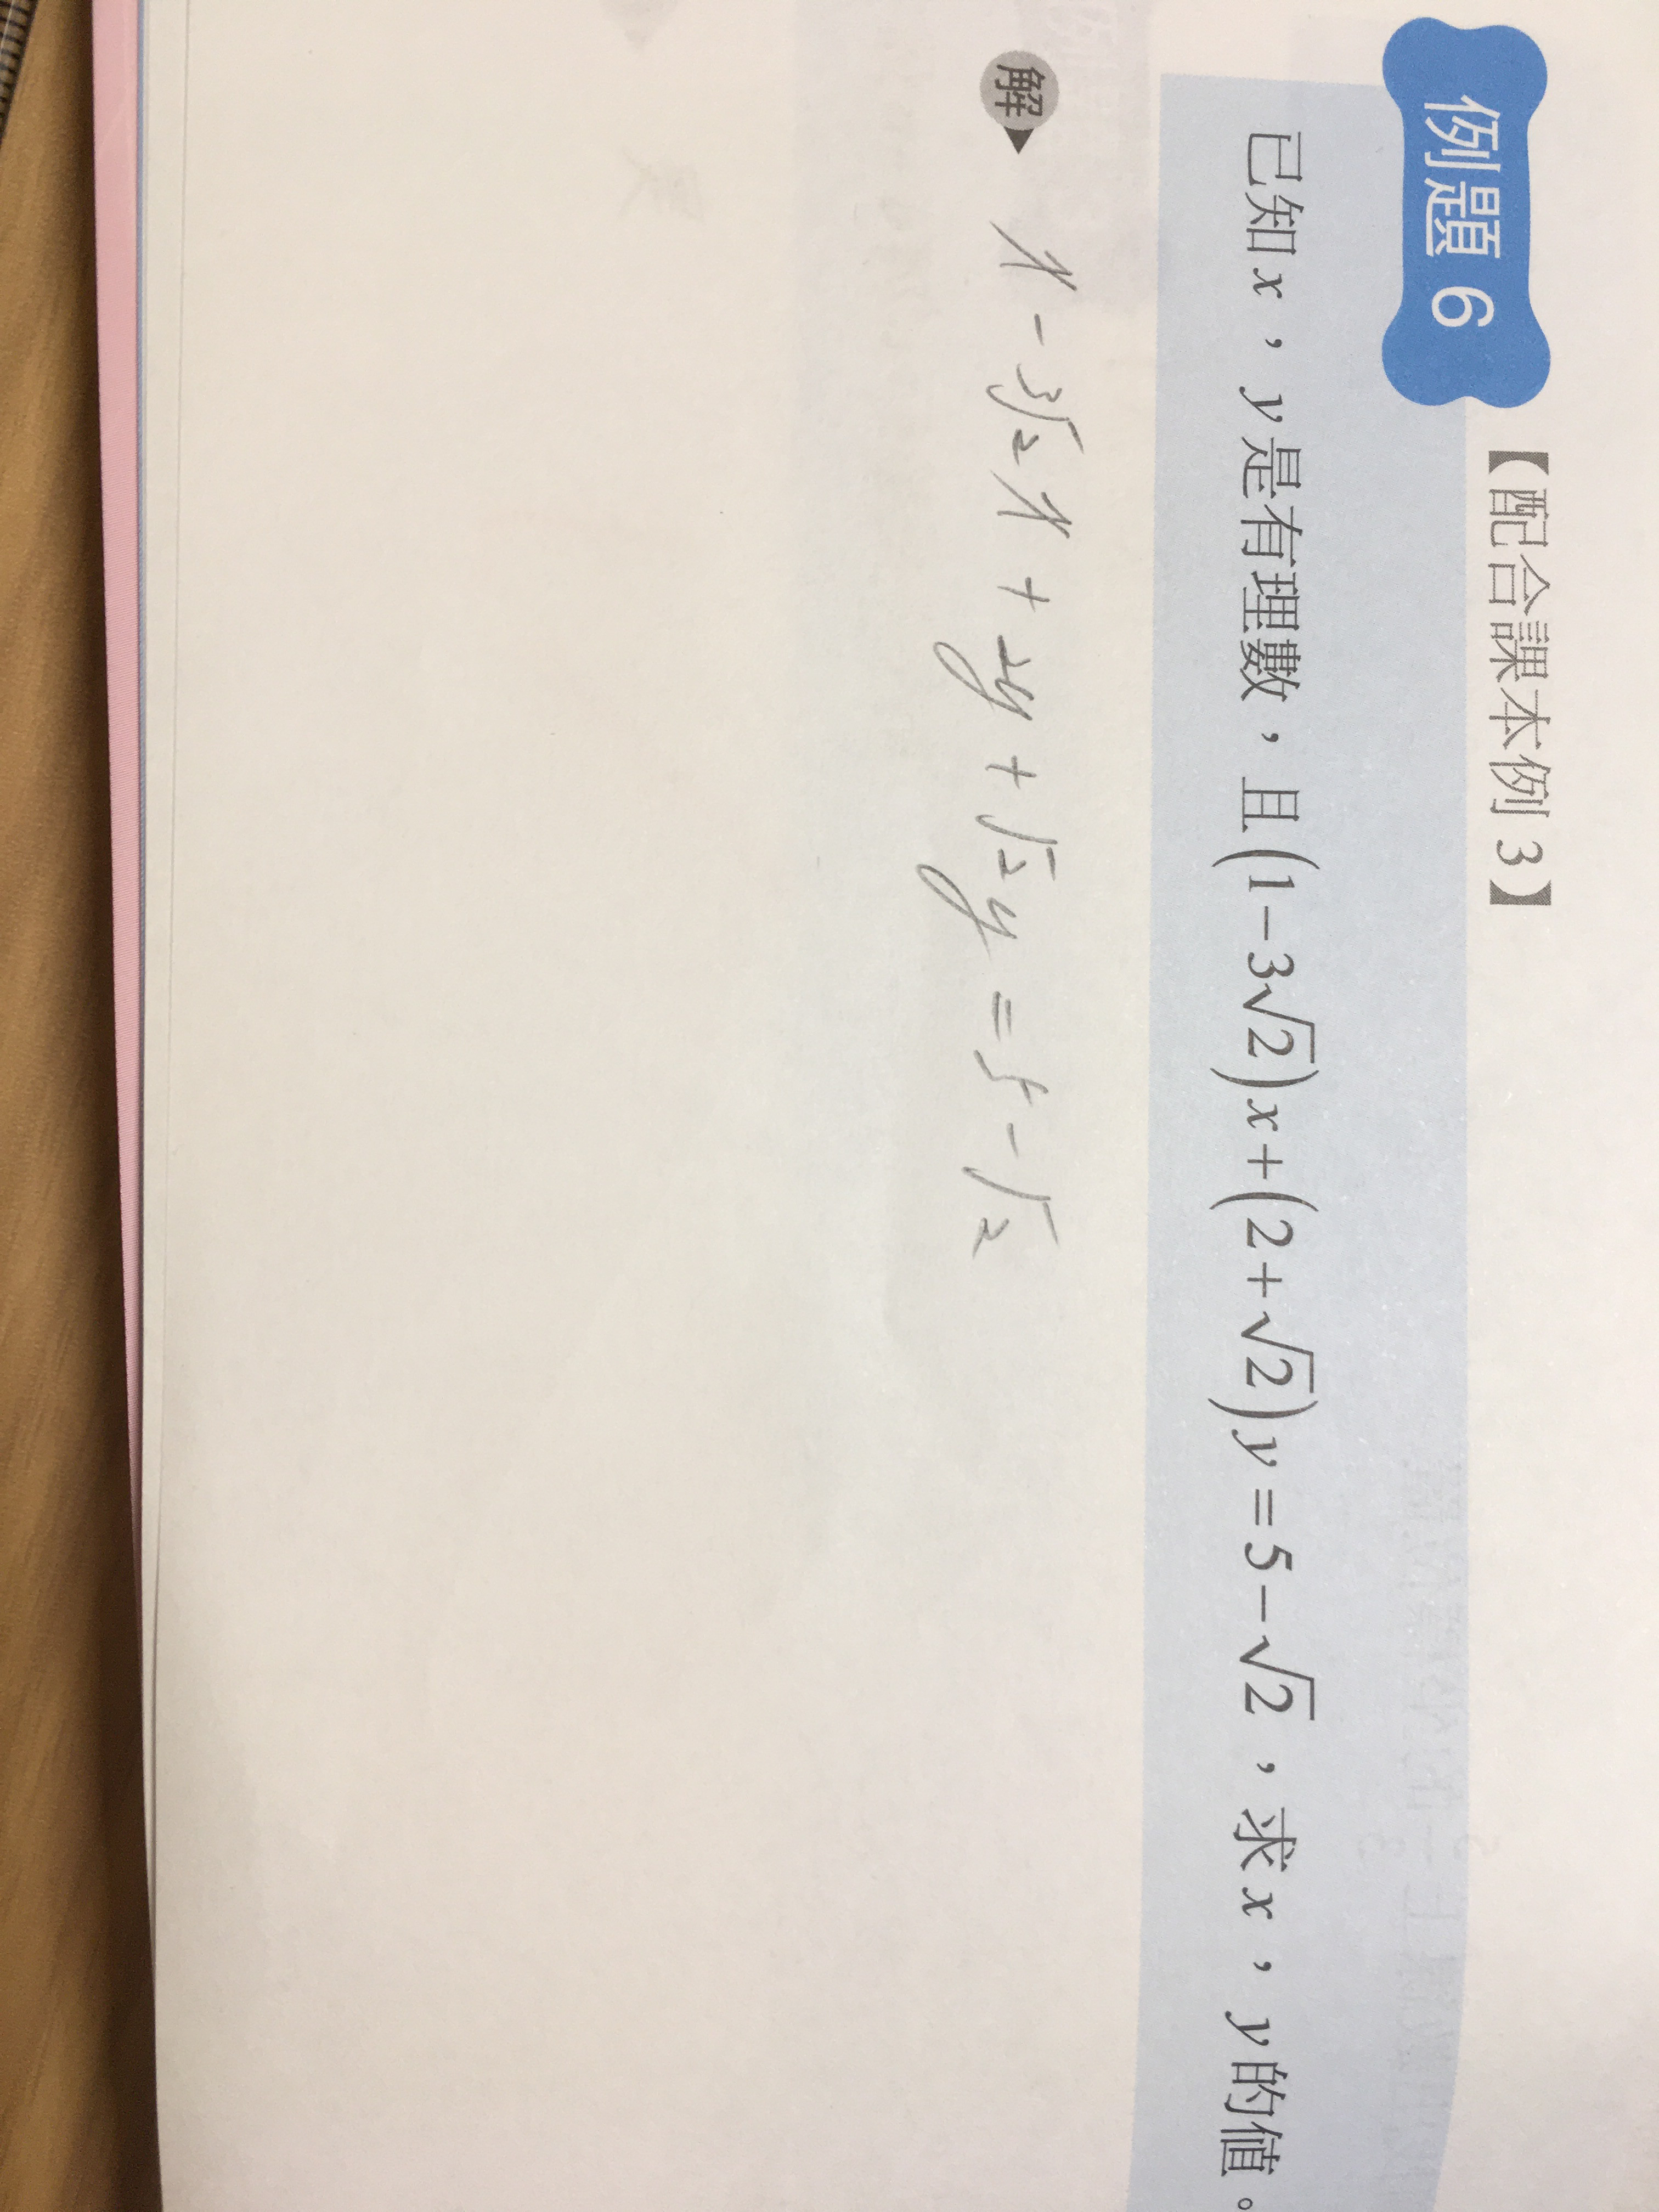 例題 6
【配合課本例 3】
已知x，y是有理數，且(1−3√2)x+(2+√2)y=5−√2，求x，y的值。
解
x − 3√2 x + 2y + √2 y = 5 − √2